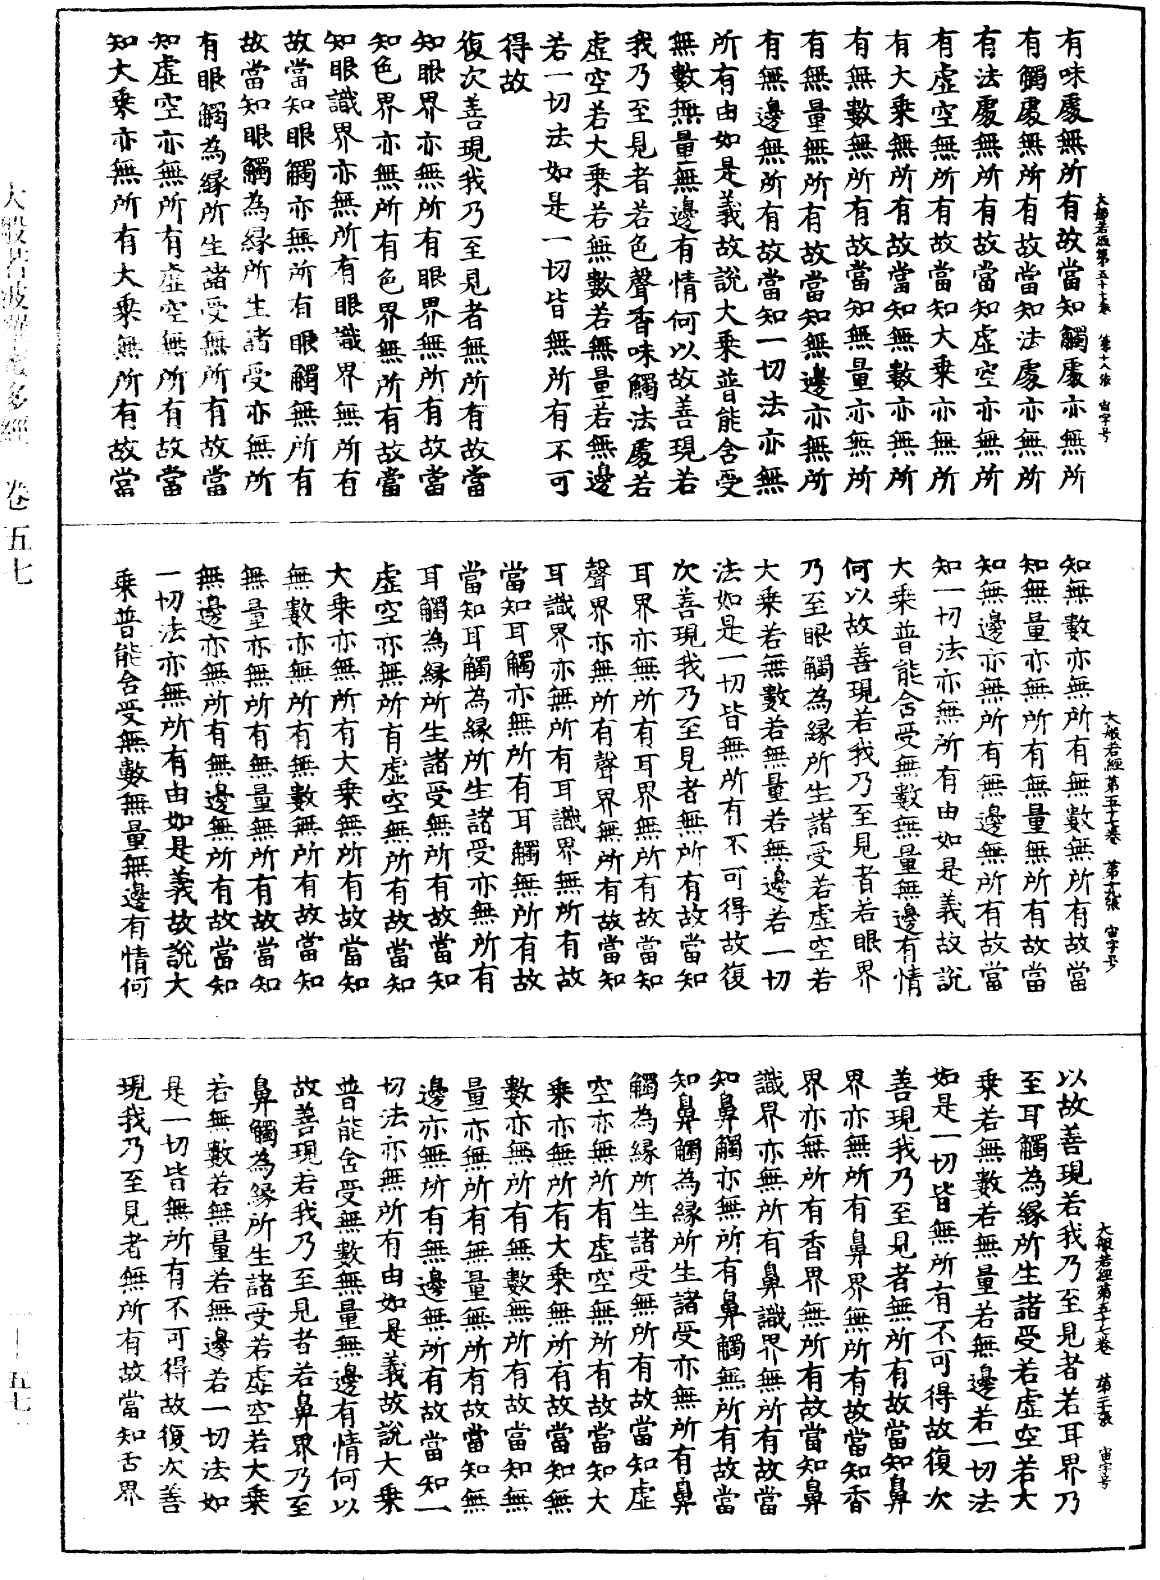 大般若經第五十七卷　第十八張　宙字号
有味處無所有故當知觸處亦無所
有觸處無所有故當知法處亦無所
有法處無所有故當知虛空亦無所
有虛空無所有故當知大乘亦無所
有大乘無所有故當知無數亦無所
有無數無所有故當知無量亦無所
有無量無所有故當知無邊亦無所
有無邊無所有故當知一切法亦無
所有由如是義故說大乘普能含受
無數無量無邊有情何以故善現若
我乃至見者若色聲香味觸法處若
虛空若大乘若無數若無量若無邊
若一切法如是一切皆無所有不可
得故
復次善現我乃至見者無所有故當
知眼界亦無所有眼界無所有故當
知色界亦無所有色界無所有故當
知眼識界亦無所有眼識界無所有
故當知眼觸亦無所有眼觸無所有
故當知眼觸為緣所生諸受亦無所
有眼觸為緣所生諸受無所有故當
知虛空亦無所有虛空無所有故當
知大乘亦無所有大乘無所有故當
大般若經第五十七卷　第十九張　宙字号
知無數亦無所有無數無所有故當
知無量亦無所有無量無所有故當
知無邊亦無所有無邊無所有故當
知一切法亦無所有由如是義故說
大乘普能含受無數無量無邊有情
何以故善現若我乃至見者若眼界
乃至眼觸為緣所生諸受若虛空若
大乘若無數若無量若無邊若一切
法如是一切皆無所有不可得故復
次善現我乃至見者無所有故當知
耳界亦無所有耳界無所有故當知
聲界亦無所有聲界無所有故當知
耳識界亦無所有耳識界無所有故
當知耳觸亦無所有耳觸無所有故
當知耳觸為緣所生諸受亦無所有
耳觸為緣所生諸受無所有故當知
虛空亦無所有虛空無所有故當知
大乘亦無所有大乘無所有故當知
無數亦無所有無數無所有故當知
無量亦無所有無量無所有故當知
無邊亦無所有無邊無所有故當知
一切法亦無所有由如是義故說大
乘普能含受無數無量無邊有情何
大般若經第五十七卷　第二十張　宙字号
以故善現若我乃至見者若耳界乃
至耳觸為緣所生諸受若虛空若大
乘若無數若無量若無邊若一切法
如是一切皆無所有不可得故復次
善現我乃至見者無所有故當知鼻
界亦無所有鼻界無所有故當知香
界亦無所有香界無所有故當知鼻
識界亦無所有鼻識界無所有故當
知鼻觸亦無所有鼻觸無所有故當
知鼻觸為緣所生諸受亦無所有鼻
觸為緣所生諸受無所有故當知虛
空亦無所有虛空無所有故當知大
乘亦無所有大乘無所有故當知無
數亦無所有無數無所有故當知無
量亦無所有無量無所有故當知無
邊亦無所有無邊無所有故當知一
切法亦無所有由如是義故說大乘
普能含受無數無量無邊有情何以
故善現若我乃至見者若鼻界乃至
鼻觸為緣所生諸受若虛空若大乘
若無數若無量若無邊若一切法如
是一切皆無所有不可得故復次善
現我乃至見者無所有故當知舌界
大般若波羅蜜多經　卷五七
一—五七一